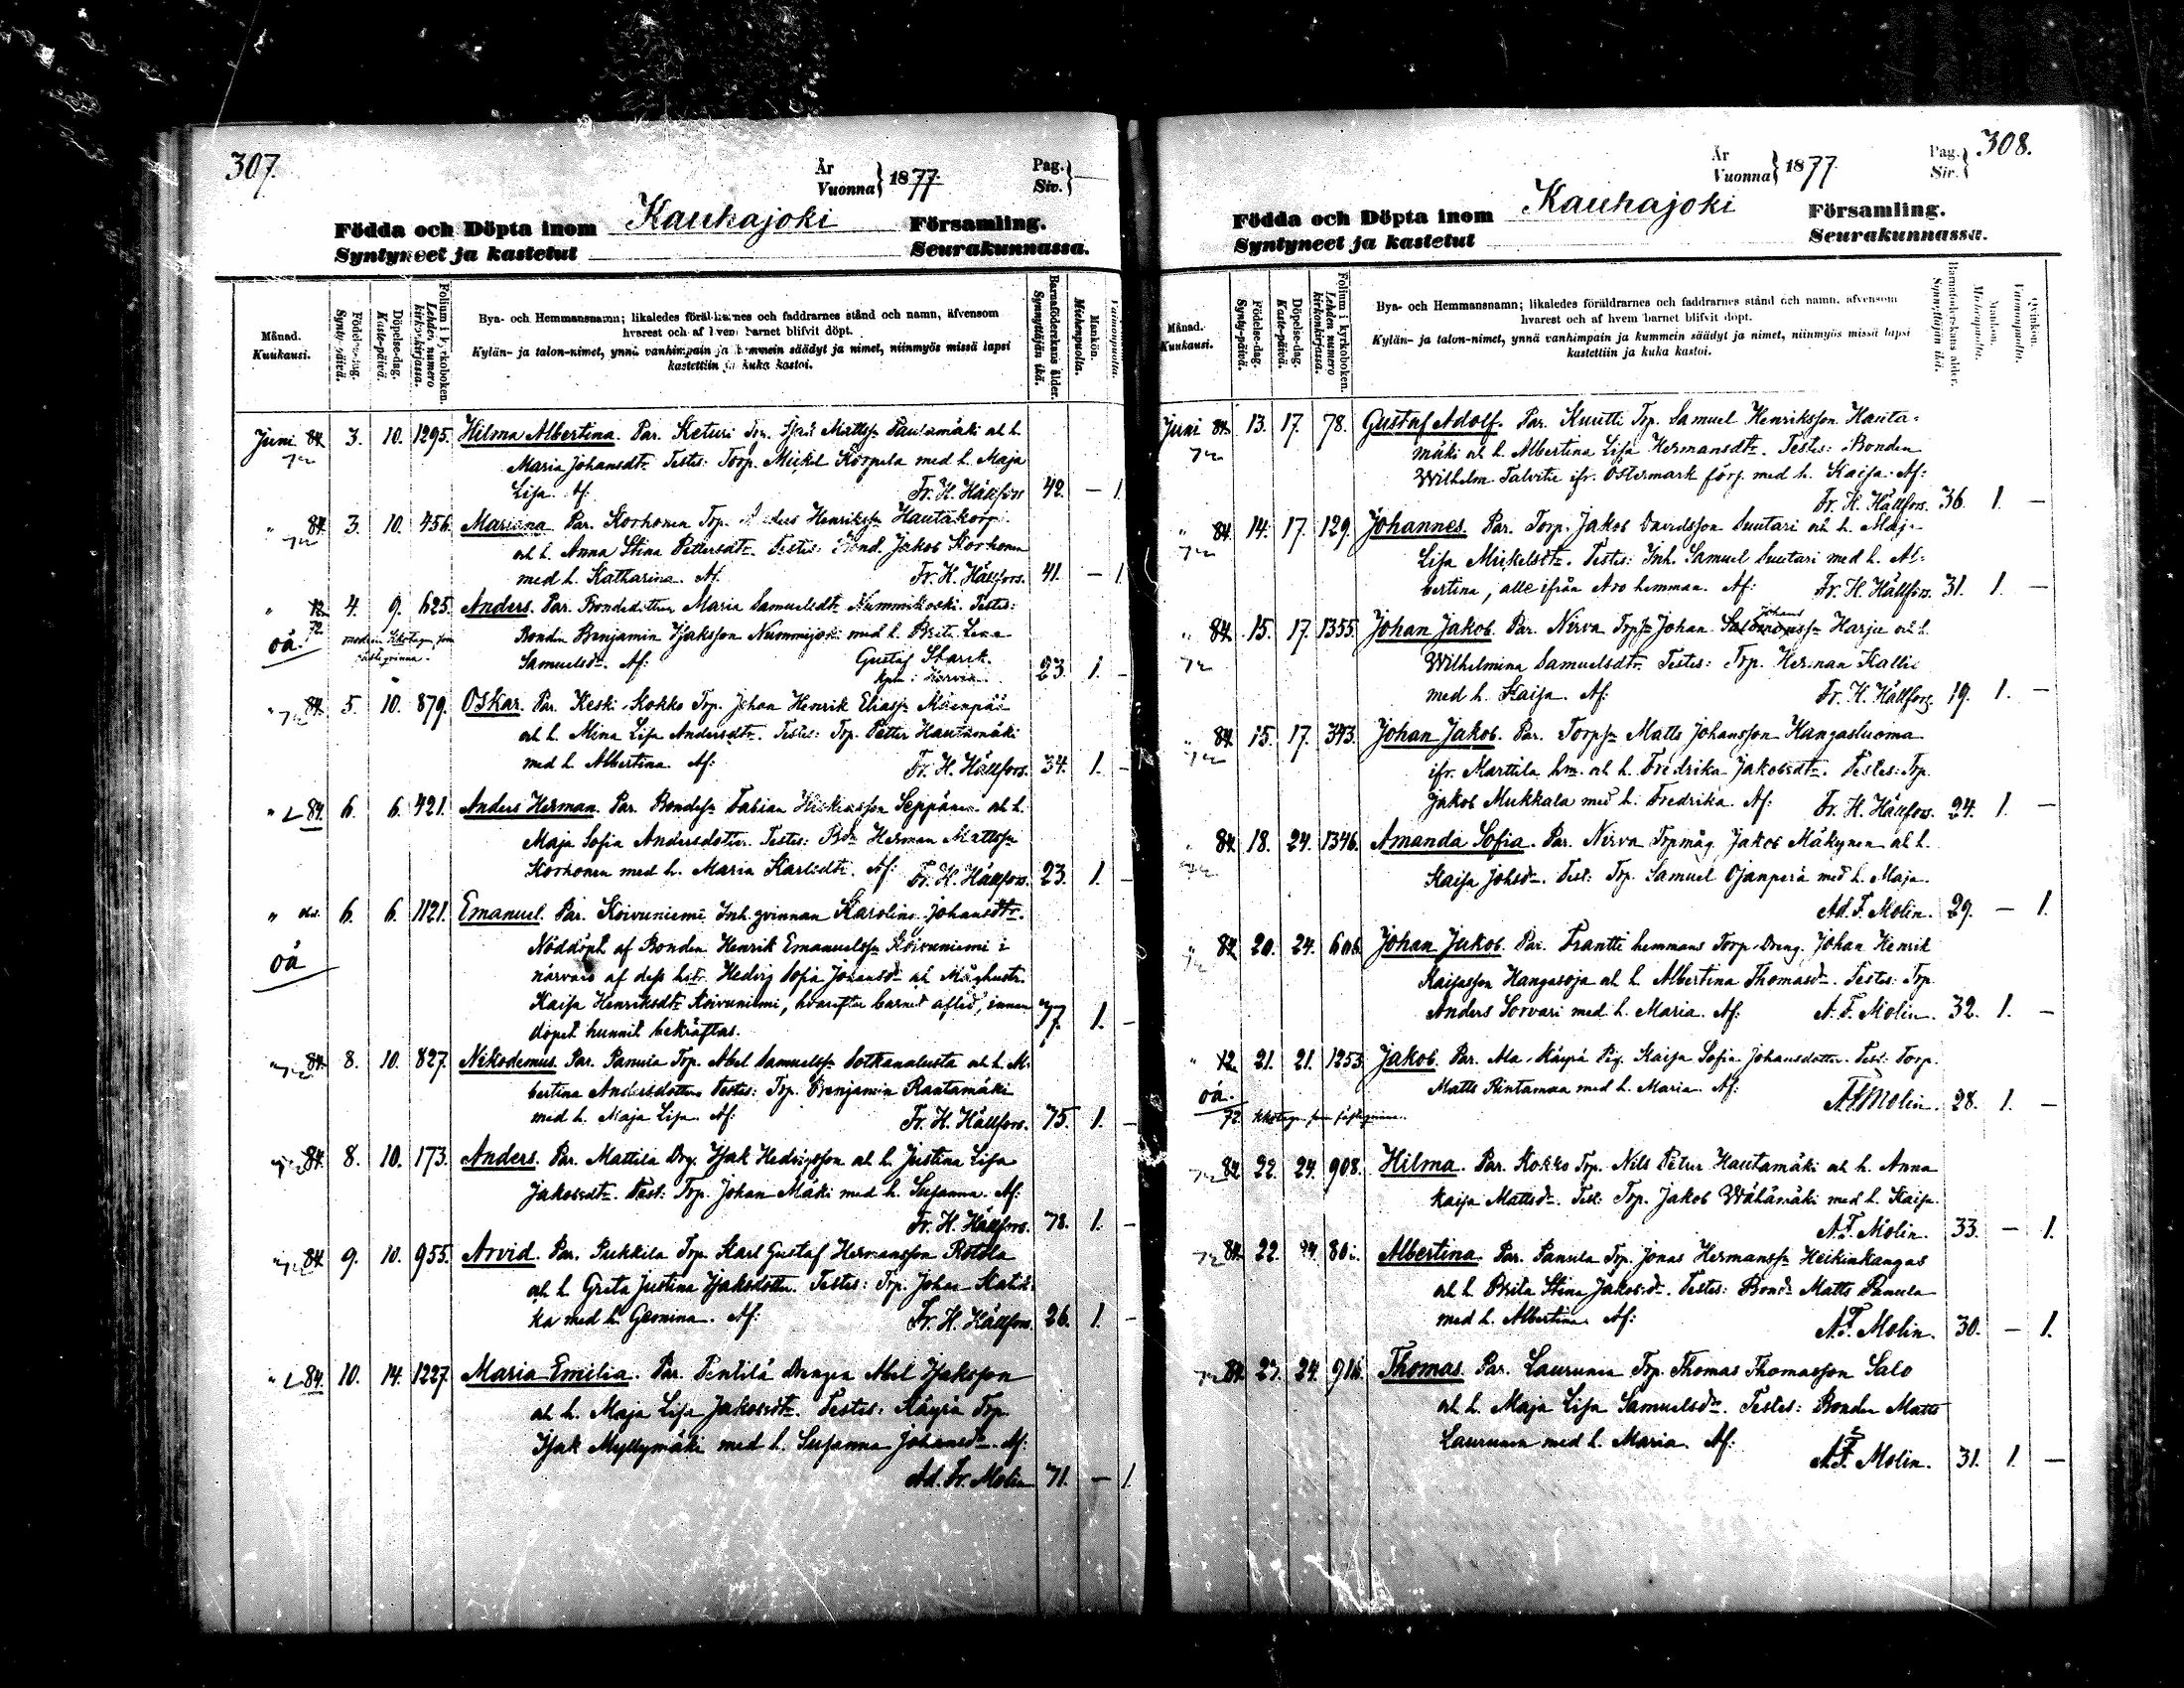 307.
År
Vuonna } 1877.
Pag.
Siv. }
Födda och Döpta inom Kauhajoki Församling.
Syntyneet ja kastetut Seurakunnassa.
Månad.
Kuukausi.
Födelse-dag.
Synty-päivä.
Döpelse-dag.
Kaste-päivä.
Folium i kyrkoboken.
Lehden numero kirkonkirjassa.
Bya- och Hemmansnamn; likaledes föräldrarnes och faddrarnes stånd och namn, äfvensom
hvarest och af hvem barnet blifvit döpt.
Kylän- ja talon-nimet, ynnä vanhimpain ja kummein säädyt ja nimet, niinmyös missä lapsi
kastettiin ja kuka kastoi.
Barnaföderskans ålder.
Synnyttäjän ikä.
Mankön.
Miehenpuolia.
Vaimonpuolia.
Juni 84. 3. 10. 1295. Hilma Albertina. Par. Keturi Trp. Isak Mattss. Pantamäki och h.
Maria Johansdtr. Testes: Torp. Mickel Korpela med h. Maja
Lisa. Af: Fr. H. Hällfors 42. — 1.
" 84. 3. 10. 456. Mariana. Par. Korhonen Trp. Henrikss. Hautakorpi
och h. Anna Stina Pettersdtr. Testes: Bond. Jakob Korhonen
med h. Katharina. Af. Fr. H. Hällfors. 41. — 1.
" 4. 9. 625. Anders. Par. Bondedottren Maria Samuelsdtr Nummikoski. Testes:
oä. Bonden Benjamin Isaksson Nummijoki med h. Brita Lena
Samuelsdr. Af: Gustaf Starck.
23. 1. —
" 84. 5. 10. 879. Oskar. Par. Keski-Kokko Trp. Johan Henrik Eliass. Mäenpää
och h. Mina Lisa Andersdtr. Testes: Trp. Petter Hautamäki
med h. Albertina. Af: Fr. H. Hällfors. 34. 1. —
" 84. 6. 6. 421. Anders Herman. Par. Bondess. Fabian Seppänen och h.
Maja Sofia Andersdotter. Testes: Bdn Herman Mattss.
Korhonen med h. Maria Karlsdtr. Af: Fr. H. Hällfors. 23. 1. —
" 6. 6. 1121. Emanuel. Par. Koivuniemi Inh. qvinnan Karolina Johansdtr.
oä Nöddöpt af Bonden Henrik Emanuelss. Koivuniemi i
närvaro af dess hstr. Hedvig Sofia Johansdr och Måghustr.
Kaisa Henriksdtr Koivuniemi, hvarefter barnet aflied, innan
dopet hunnit bekräftas. 1. —
84. 8. 10. 827. Nikodemus. Par. Panula Trp. Abel Samuelss. Sotkanalusta och h. Al-
bertina Andersdotter. Testes: Trp. Benjamin Rantamäki
med h. Maja Lisa. Af: Fr. H. Hällfors. 75. 1. —
84. 8. 10. 173. Anders. Par. Mattila Drg. Isak Hedvigsson och h. Justina Lisa
Jakobsdtr. Test: Trp. Johan Mäki med h. Susanna. Af:
Fr. H. Hällfors. 78. 1. —
84. 9. 10. 955. Arvid. Par. Pukkila Trp. Karl Gustaf Hermansson Rotola
och h. Greta Justina Isaksdotter. Testes: Trp. Johan
ka med h. Af: Fr. H. Hällfors. 26. 1. —
" 84. 10. 14. 1227. Maria Emilia. Par. Pentilä Drengen Abel Isaksson
och h. Maja Lisa Jakobsdtr. Testes: Käyrä Trp.
Isak Myllymäki med h. Susanna Johansdr. Af:
Ad. Fr. Molin 71. — 1.
308.
År
Vuonna } 1877.
Pag.
Siv. }
Födda och Döpta inom Kauhajoki Församling.
Syntyneet ja kastetut Seurakunnassa.
Månad.
Kuukausi.
Födelse-dag.
Synty-päivä.
Döpelse-dag.
Kaste-päivä.
Folium i kyrkoboken.
Lehden numero kirkonkirjassa.
Bya- och Hemmansnamn; likaledes föräldrarnes och faddrarnes stånd och namn, äfvensom
hvarest och af hvem barnet blifvit döpt.
Kylän- ja talon-nimet, ynnä vanhimpain ja kummein säädyt ja nimet, niinmyös missä lapsi
kastettiin ja kuka kastoi.
Barnaföderskans ålder.
Synnyttäjän ikä.
Mankön.
Miehenpuolia.
Qvinkön.
Vaimonpuolia.
Juni 84. 13. 17. 78. Gustaf Adolf. Par. Knutti Trp. Samuel Henriksson Hauta-
mäki och h. Albertina Lisa Hermansdtr. Testes: Bonden
Wilhelm Talvitie ifr. Östermark förs. med h. Kaisa. Af:
Fr. H. Hällfors. 36. 1. —
" 84. 14. 17. 129. Johannes. Par. Torp. Jakob Davidsson Suutari och h. Maja
Lisa Mickelsdtr. Testes: Inh. Samuel Suutari med h. Al-
bertina, alle ifrån Aro hemman. Af: Fr. H. Hällfors. 31. 1. —
" 84. 15. 17. 1355. Johan Jakob. Par. Nirva Trpss. Johan Johans Harju och h.
Wilhelmina Samuelsdtr. Testes: Trp. Herman Kallio
med h. Kaisa. Af: Fr. H. Hällfors. 19. 1. —
" 84. 15. 17. 393. Johan Jakob. Par. Torpss. Matts Johansson Kangasluoma
ifr. Marttila hm. och h. Fredrika Jakobsdtr. Testes: Trp.
Jakob Mukkala med h. Fredrika. Af: Fr. H. Hällfors. 24. 1. —
84. 18. 24. 1346. Amanda Sofia. Par. Nirva Trpmåg Jakob Mäkynen och h.
Kaisa Johsdr. Test: Trp. Samuel Ojanperä med h. Maja.
Ad. F. Molin. 29. — 1.
" 84. 20. 24. 606. Johan Jakob. Par. Frantti hemmans Torp-Dreng Johan Henrik
Kaisasson Hangasoja och h. Albertina Thomasdr. Testes: Trp.
Anders Sorvari med h. Maria. Af: A. F. Molin. 32. 1. —
" 21. 21. 1253. Jakob. Par. Ala-Käyrä Pig. Kaisa Sofia Johansdotter. Test: Torp.
oä. Matts Rintamaa med h. Maria. Af:
A. F. Molin. 28. 1. —
84. 22. 24. 908. Hilma. Par. Kokko Trp. Nils Petter Hautamäki och h. Anna
Kaisa Mattsdr. Test: Trp. Jakob Wähämäki med h. Kaisa.
A. F. Molin. 33. — 1.
84. 22. 24. Albertina. Par. Panula Trp. Jonas Hermanss. Heikinkangas
och h. Brita Stina Jakobsdr. Testes: Bond. Matts Panula
med h. Albertina. Af: A. F. Molin. 30. — 1.
84. 23. 24. 916. Thomas. Par. Laurunen Trp. Thomas Thomasson Salo
och h. Maja Lisa Samuelsdr. Testes: Bonden Matts
Laurunen med h. Maria. Af: A. F. Molin. 31. 1. —